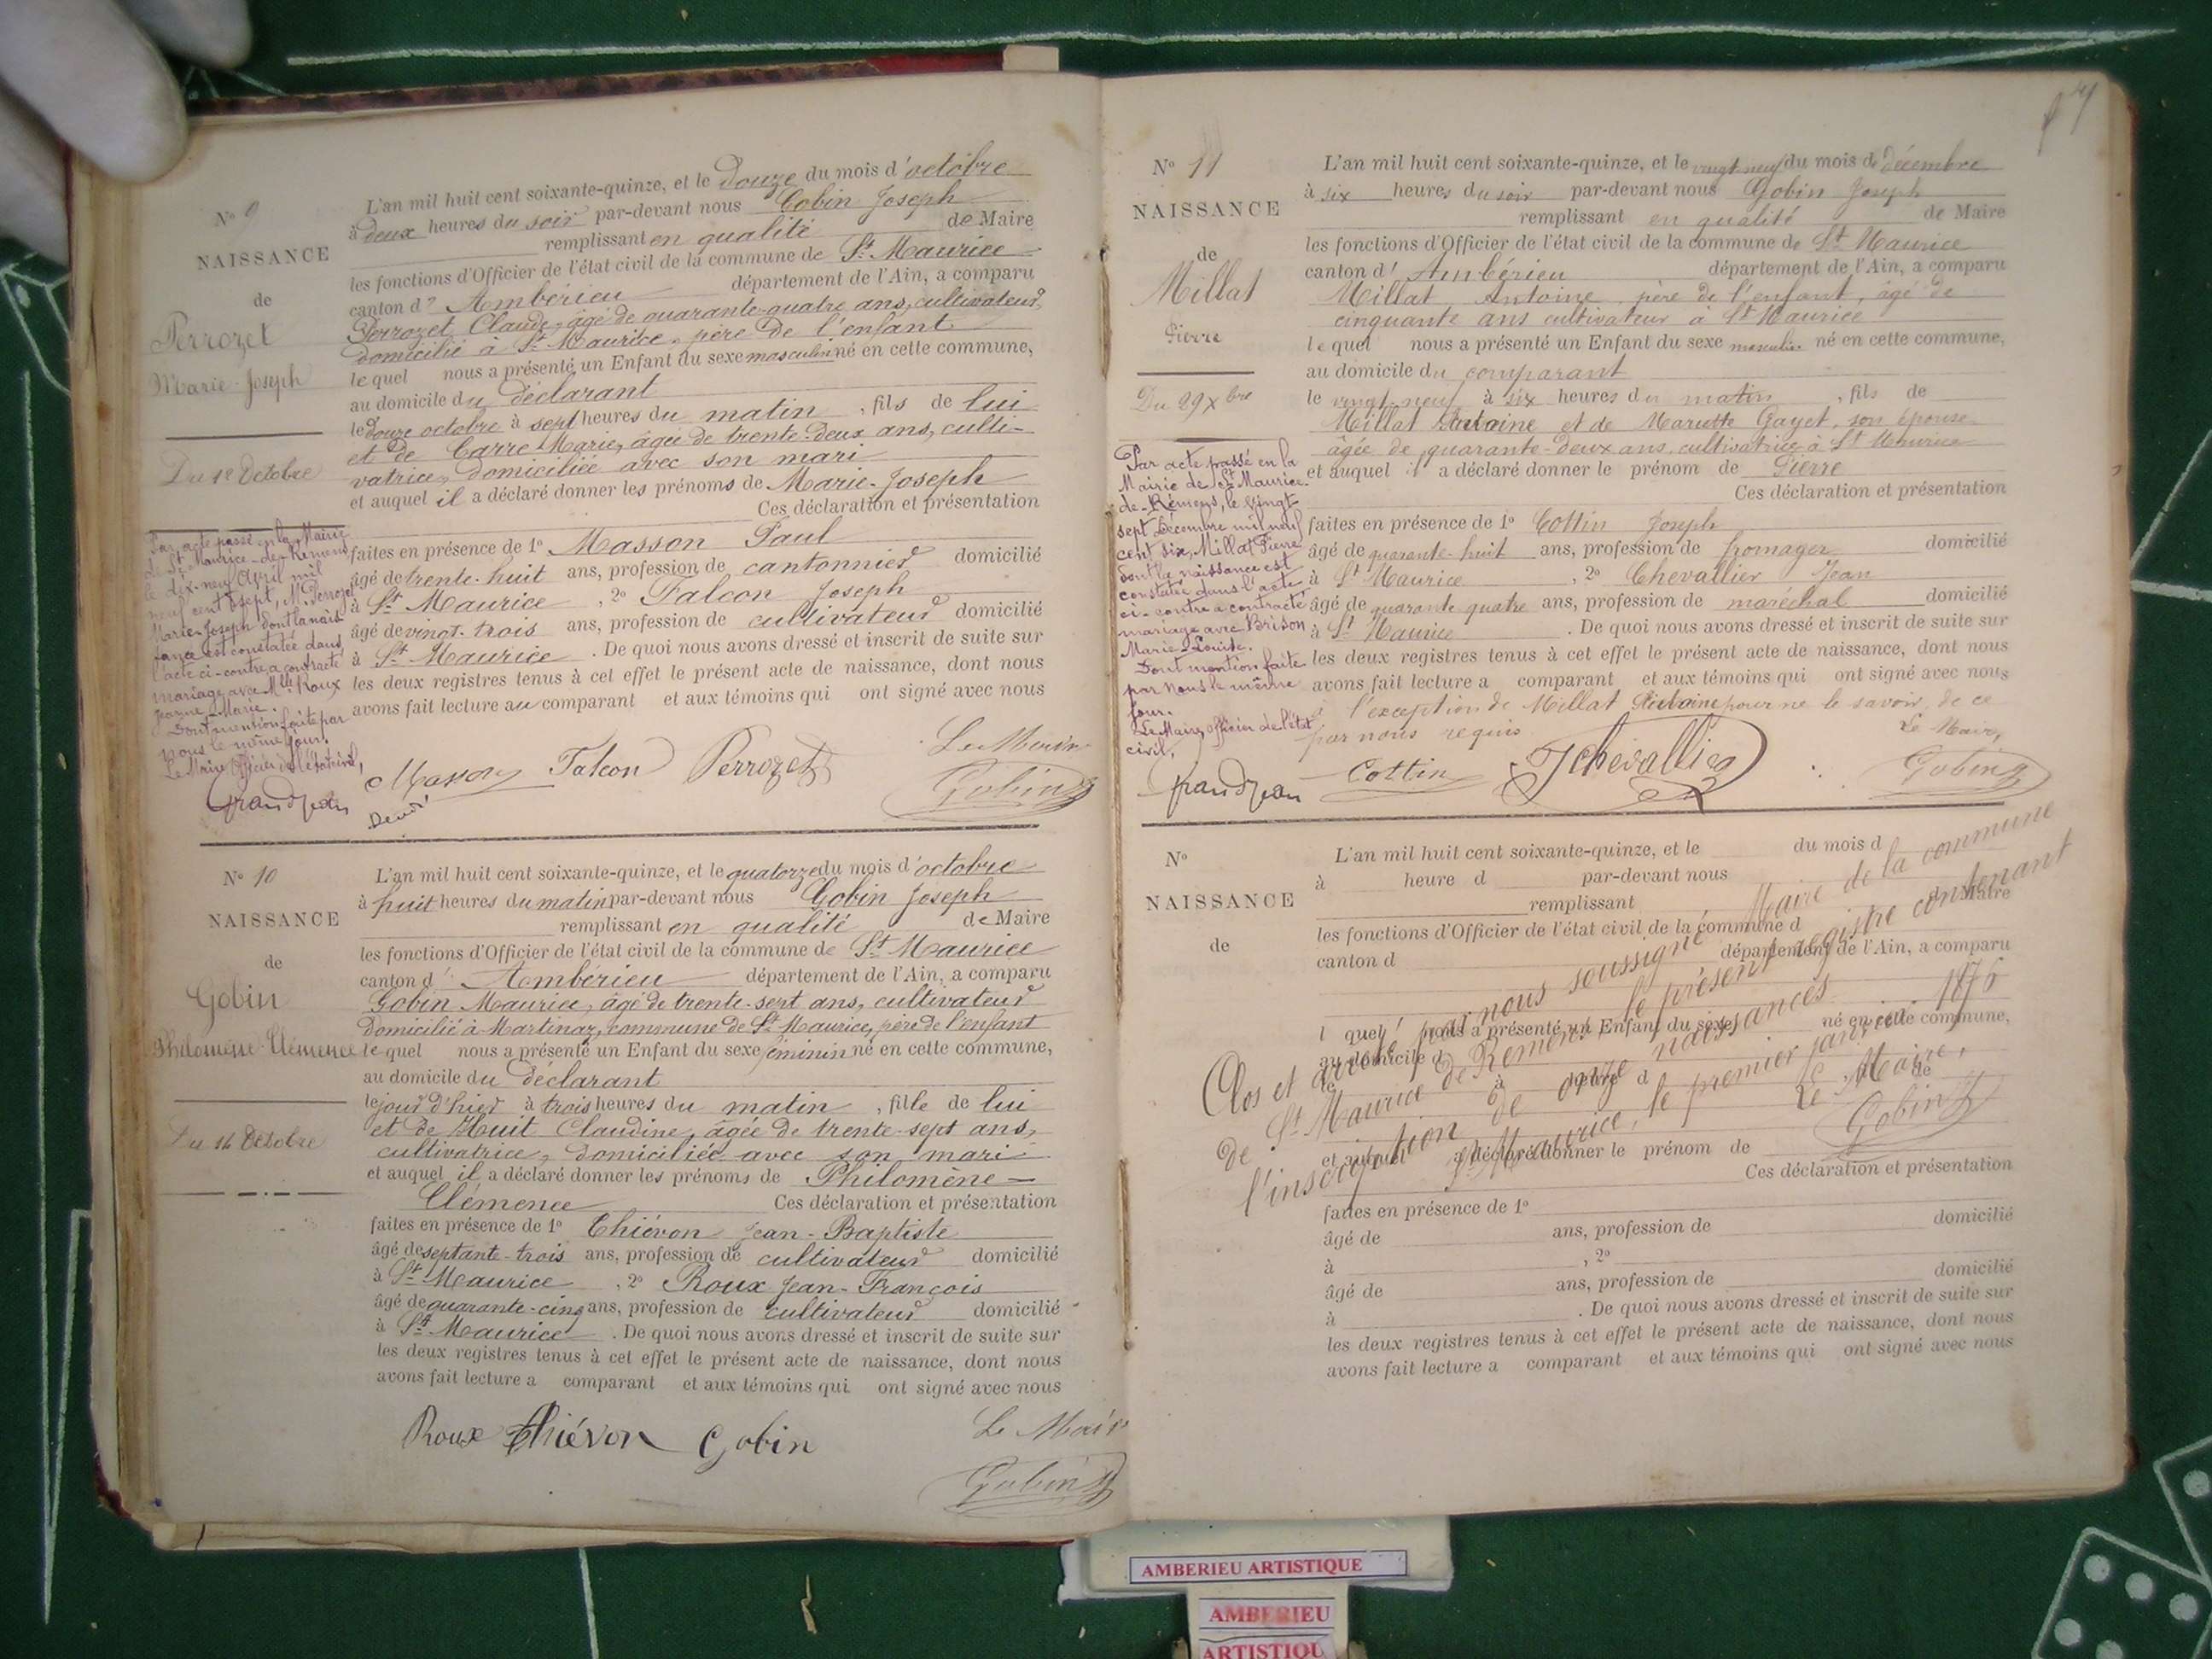 N° 9
NAISSANCE
de
Perrozet
Marie-Joseph
Du 12 Octobre
Par acte passé en la Mairie
de St Maurice-de-Rémens
le dix-neuf Avril mil
neuf cent sept, Mr Perrozet
Marie-Joseph dont la nais
sance est constatée dans
l'acte ci-contre a contracté
mariage avec Mlle Roux
Marie.
Dont mention faite par
nous le même jour.
Le Maire Officier de l'état civil,
Grandjean
L'an mil huit cent soixante-quinze, et le douze du mois d'octobre
à deux heures du soir par-devant nous Gobin Joseph
remplissant en qualité de Maire
les fonctions d'Officier de l'état civil de la commune de St Maurice
canton d' Ambérieu département de l'Ain, a comparu
Perrozet Claude, âgé de quarante-quatre ans, cultivateur,
domicilié à St Maurice, père de l'enfant
lequel nous a présenté un Enfant du sexe masculin né en cette commune,
au domicile du déclarant
le douze octobre à sept heures du matin, fils de lui
et de Carre Marie, âgée de trente-deux ans, culti-
vatrice, domiciliée avec son mari
et auquel il a déclaré donner les prénoms de Marie-Joseph
Ces déclaration et présentation
faites en présence de 1° Masson Paul
âgé de trente-huit ans, profession de cantonnier domicilié
à St Maurice, 2° Falcon Joseph
âgé de vingt-trois ans, profession de cultivateur domicilié
à St Maurice. De quoi nous avons dressé et inscrit de suite sur
les deux registres tenus à cet effet le présent acte de naissance, dont nous
avons fait lecture au comparant et aux témoins qui ont signé avec nous
Le Maire
Masson Falcon Perrozet Gobin
N° 10
NAISSANCE
de
Gobin
Philomène-Clémence
Du 14 Octobre
L'an mil huit cent soixante-quinze, et le quatorze du mois d'octobre
à huit heures du matin par-devant nous Gobin Joseph
remplissant en qualité de Maire
les fonctions d'Officier de l'état civil de la commune de St Maurice
canton d' Ambérieu département de l'Ain, a comparu
Gobin Maurice, âgé de trente-sept ans, cultivateur
domicilié à Martinaz, commune de St Maurice, père de l'enfant
lequel nous a présenté un Enfant du sexe féminin né en cette commune,
au domicile du déclarant
le jour d'hier à trois heures du matin, fille de lui
et de Huit Claudine, âgée de trente-sept ans,
cultivatrice, domiciliée avec son mari
et auquel il a déclaré donner les prénoms de Philomène-
Clémence Ces déclaration et présentation
faites en présence de 1° Thiévon Jean-Baptiste
âgé de septante-trois ans, profession de cultivateur domicilié
à St Maurice, 2° Roux Jean-François
âgé de quarante-cinq ans, profession de cultivateur domicilié
à St Maurice. De quoi nous avons dressé et inscrit de suite sur
les deux registres tenus à cet effet le présent acte de naissance, dont nous
avons fait lecture a comparant et aux témoins qui ont signé avec nous
Le Maire
Roux Thiévon Gobin
Gobin
N° 11
NAISSANCE
de
Millat
Pierre
Du 29 Xbre
Par acte passé en la
Mairie de St Maurice-
de-Rémens, le vingt
sept Décembre mil neuf
cent six, Millat Pierre
dont la naissance est
constatée dans l'acte
ci-contre a contracté
mariage avec Brison
Marie-Louise.
Dont mention faite
par nous le même
jour.
Le Maire, officier de l'état
civil,
Grandjean
L'an mil huit cent soixante-quinze, et le vingt-neuf du mois de décembre
à six heures du soir par-devant nous Gobin Joseph
remplissant en qualité de Maire
les fonctions d'Officier de l'état civil de la commune de St Maurice
canton d' Ambérieu département de l'Ain, a comparu
Millat Antoine père de l'enfant, âgé de
cinquante ans cultivateur à St Maurice
lequel nous a présenté un Enfant du sexe masculin né en cette commune,
au domicile du comparant
le vingt-neuf à six heures du matin, fils de
Millat Antoine et de Mariette Gayet, son épouse
âgée de quarante-deux ans, cultivatrice à St Maurice
et auquel il a déclaré donner le prénom de Pierre
Ces déclaration et présentation
faites en présence de 1° Cottin Joseph
âgé de quarante-huit ans, profession de fromager domicilié
à St Maurice, 2° Chevallier Jean
âgé de quarante quatre ans, profession de maréchal domicilié
à St Maurice. De quoi nous avons dressé et inscrit de suite sur
les deux registres tenus à cet effet le présent acte de naissance, dont nous
avons fait lecture a comparant et aux témoins qui ont signé avec nous
à l'exception de Millat Antoine pour ne le savoir, de ce
par nous requis. Le Maire,
Cottin J Chevallier Gobin
N°
NAISSANCE
de
L'an mil huit cent soixante-quinze, et le du mois d
à heure d par-devant nous
remplissant de Maire
les fonctions d'Officier de l'état civil de la commune d
canton d département de l'Ain, a comparu
l quel nous a présenté un Enfant du sexe né en cette commune,
au domicile d
le à heure d , de
et auquel a déclaré donner le prénom de
Ces déclaration et présentation
faites en présence de 1°
âgé de ans, profession de domicilié
à , 2°
âgé de ans, profession de domicilié
à . De quoi nous avons dressé et inscrit de suite sur
les deux registres tenus à cet effet le présent acte de naissance, dont nous
avons fait lecture a comparant et aux témoins qui ont signé avec nous
Clos et arrêté par nous soussigné Maire de la commune
de St Maurice de Rémens, le présent registre contenant
l'inscription de onze naissances
St Maurice, le premier janvier 1876
Le Maire,
Gobin
AMBERIEU ARTISTIQUE
AMBERIEU
ARTISTIQU